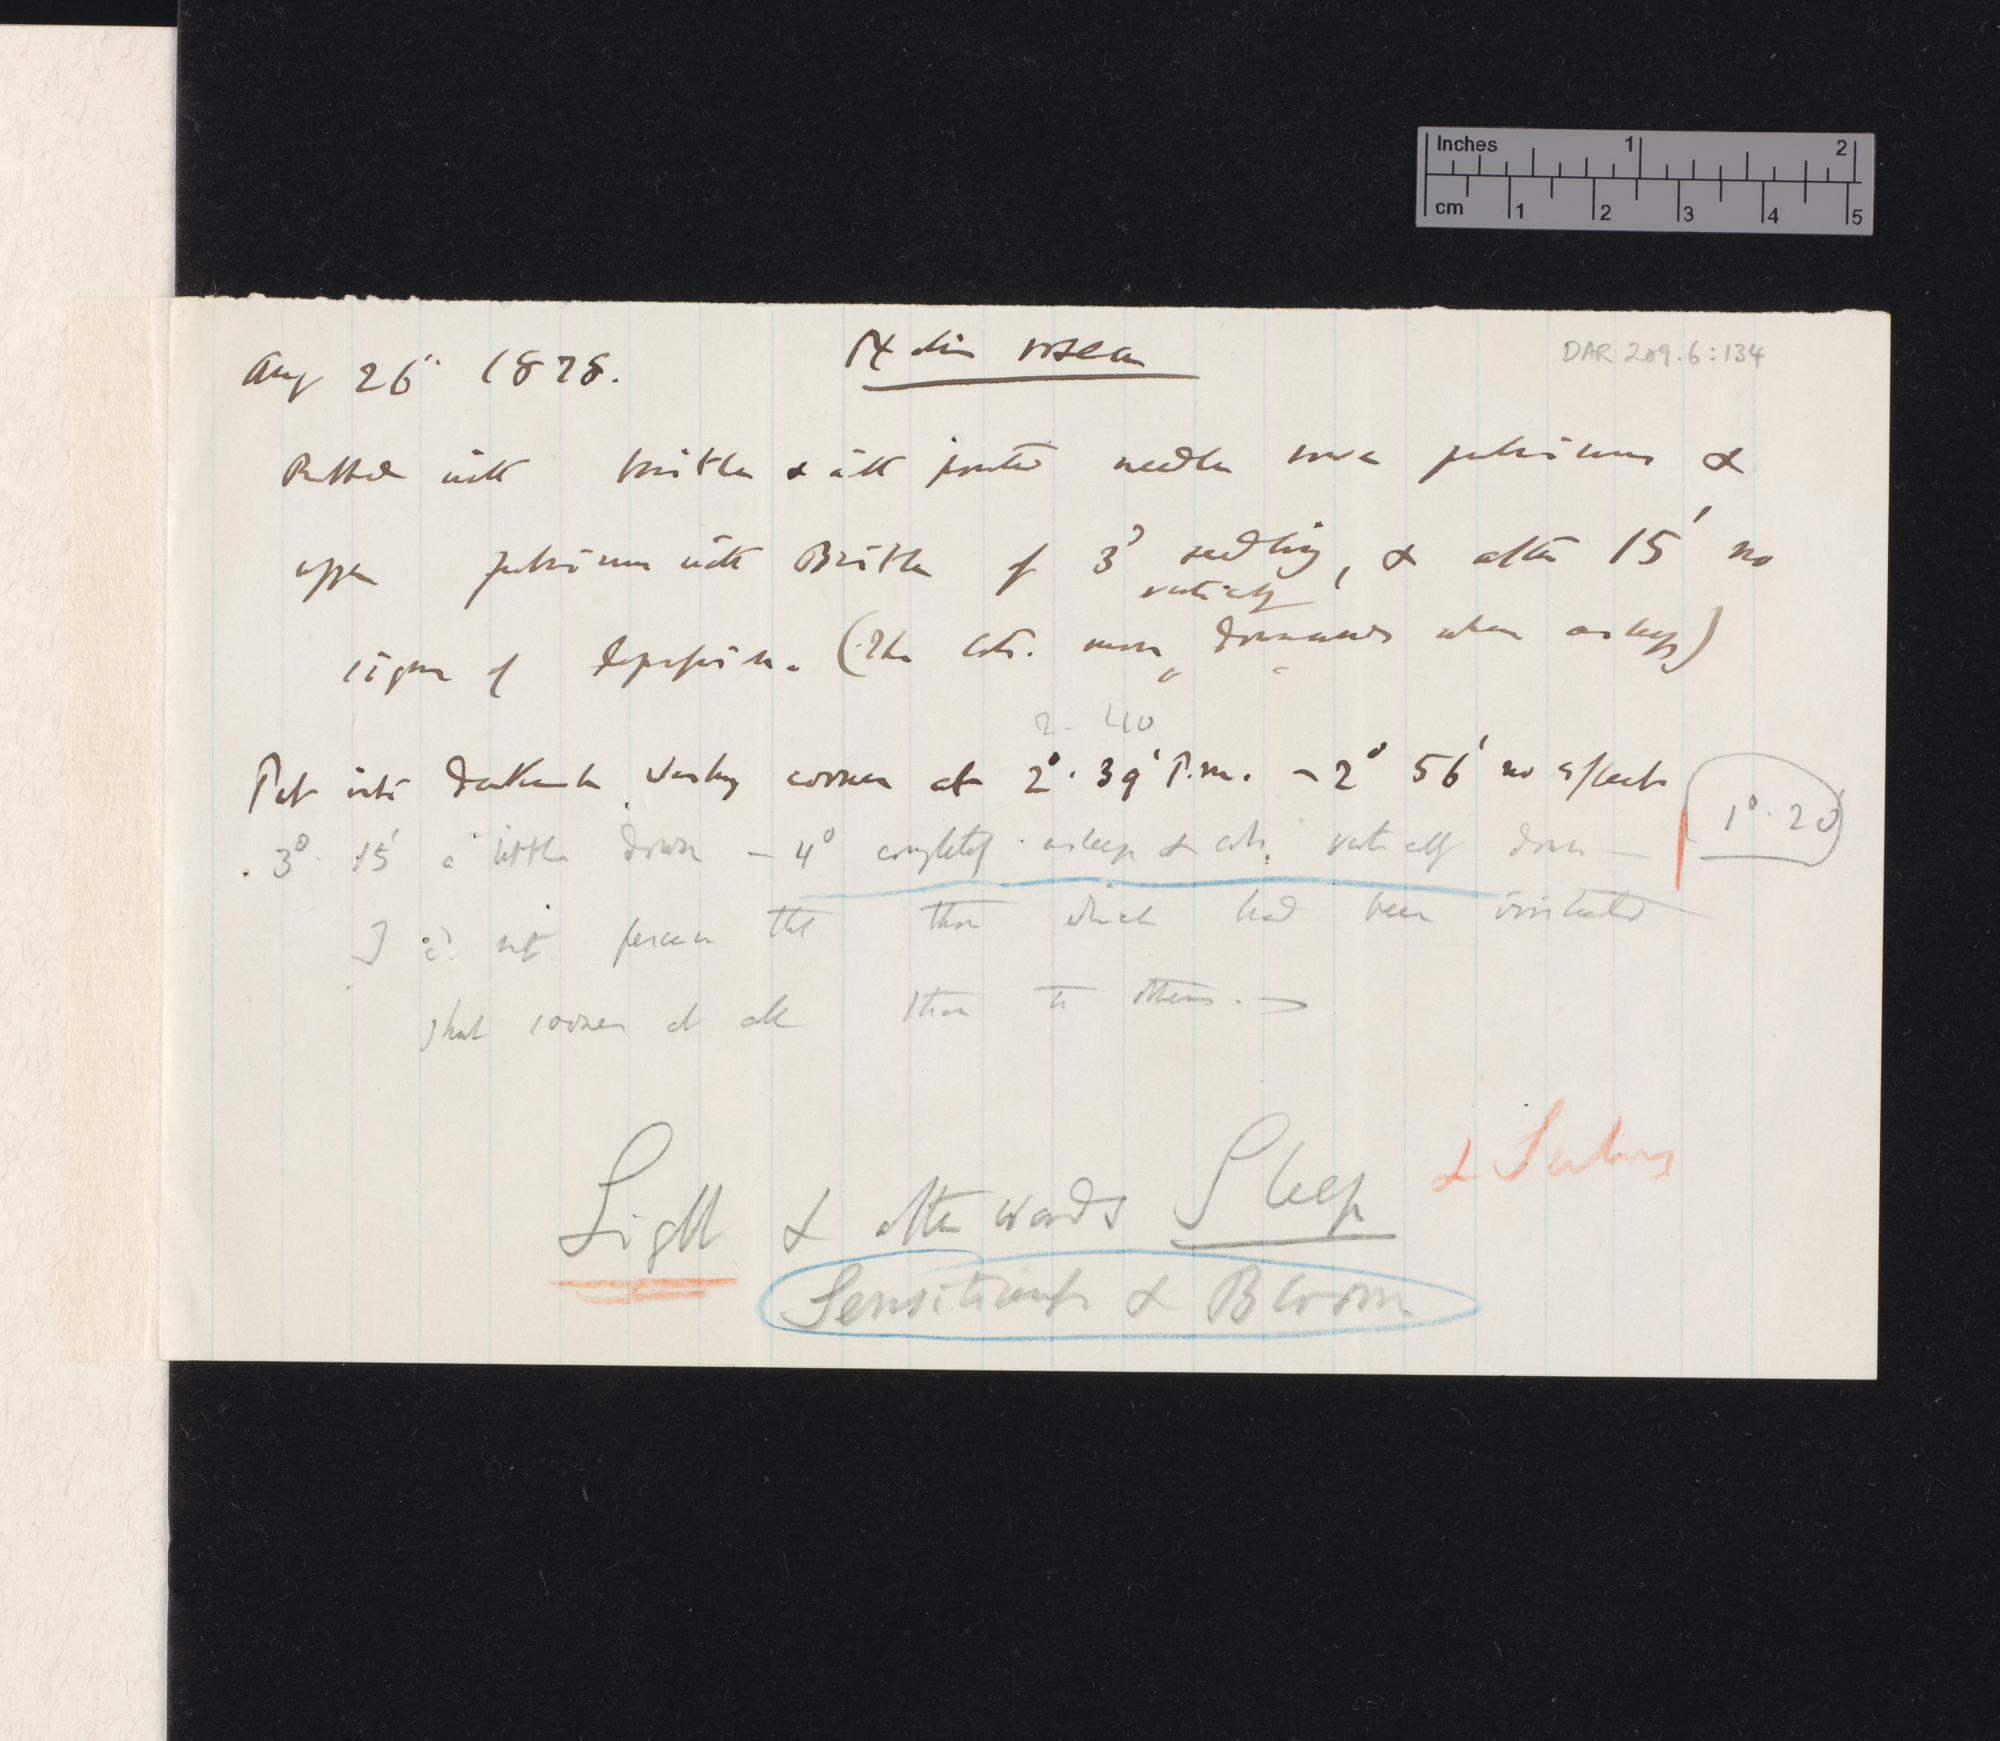 Inches 1 2
cm 1 2 3 4 5
DAR 209.6:134
Aug 26th 1878. Oxalis rosea
Rubbed with bristle & with pointed needle lower pulvinus &
upper pulvinus with Bristle of 3 seedling, & after 15' no
vertically
signs of depression. (The cots. move downwards when asleep)
2. 40
Put into darkened corner at 2°. 39' P.m. — 2° 56' no effect
1°. 20'
3°. 15' a little down — 4° completely asleep & cots. vertically down —
I did not perceive that those which had been irritated
shut sooner at all than the others. —
Light & afterwards Sleep
Sensitiveness & Bloom